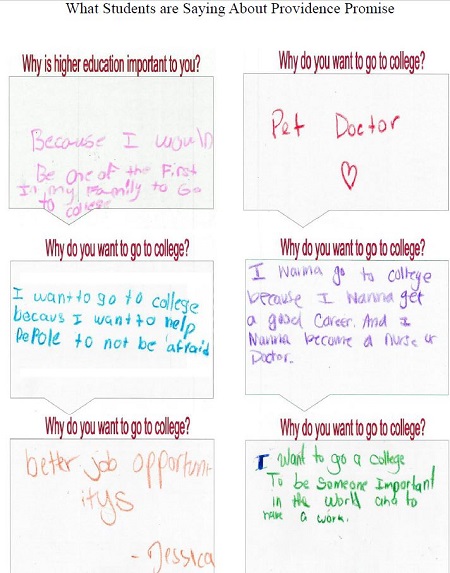 What Students are Saying About Providence Promise
Why is higher education important to you?
Because I would
Be one of the First
In my Family to Go
to college
Why do you want to go to college?
Pet Doctor
Why do you want to go to college?
I want to go to college
becaus I want to help
PePole to not be afraid
Why do you want to go to college?
I Wanna go to college
because I Wanna get
a good Career. And I
Wanna become a nurse or
Doctor.
Why do you want to go to college?
better job opportun-
itys
- Jessica
Why do you want to go to college?
I Want to go a college
To be Someone Important
in the World and to
have a work.